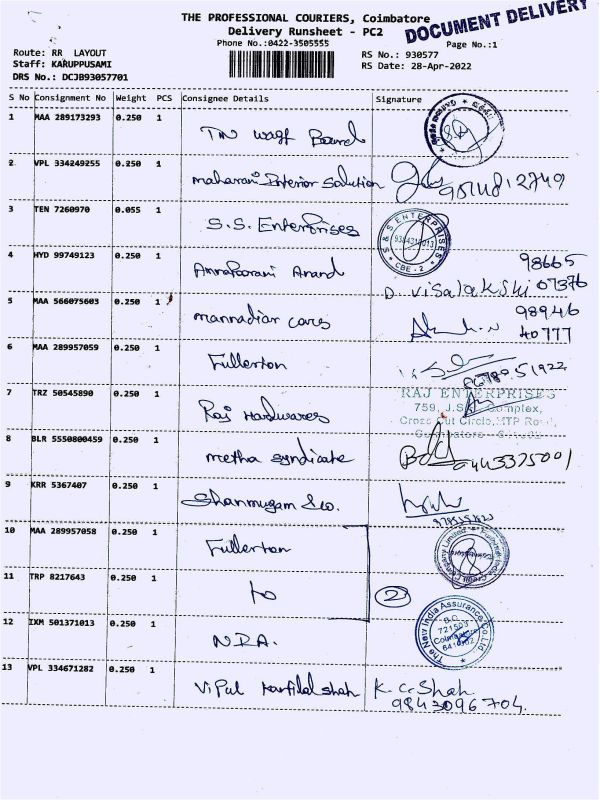 THE PROFESSIONAL COURIERS, Coimbatore
DOCUMENT DELIVERY
Delivery Runsheet - PC2
Phone No.:0422-3505555
Page No.:1
Route: RR LAYOUT
RS No.: 930577
Staff: KARUPPUSAMI
RS Date: 28-Apr-2022
DRS No.: DCJB93057701
S No Consignment No Weight PCS Consignee Details Signature
1 MAA 289173293 0.250 1
TN waqf Board
2 VPL 334249255 0.250 1
maharani Interior Solution
3 TEN 7260970 0.055 1
S.S. Enterprises
S & S ENTERPRISES
CBE - 2
4 HYD 99749123 0.250 1
Annapoorani Anand
98665
D. Visalakshi 07376
5 MAA 566075603 0.250 1
mannadiar cars
98946
40777
6 MAA 289957059 0.250 1
Fullerton
7 TRZ 50545890 0.250 1
Raj Hardwares
RAJ ENTERPRISES
759, Complex,
Cross Cut Circle, MTP Road,
8 BLR 5550800459 0.250 1
metha syndicate
9 KRR 5367407 0.250 1
Shanmugam &co.
10 MAA 289957058 0.250 1
Fullerton
11 TRP 8217643 0.250 1
to
2
12 IXM 501371013 0.250 1
N.I.A.
The New India Assurance Co Ltd
721503
Coimbatore
13 VPL 334671282 0.250 1
Vipul shah
K. C. Shah
9843096704.